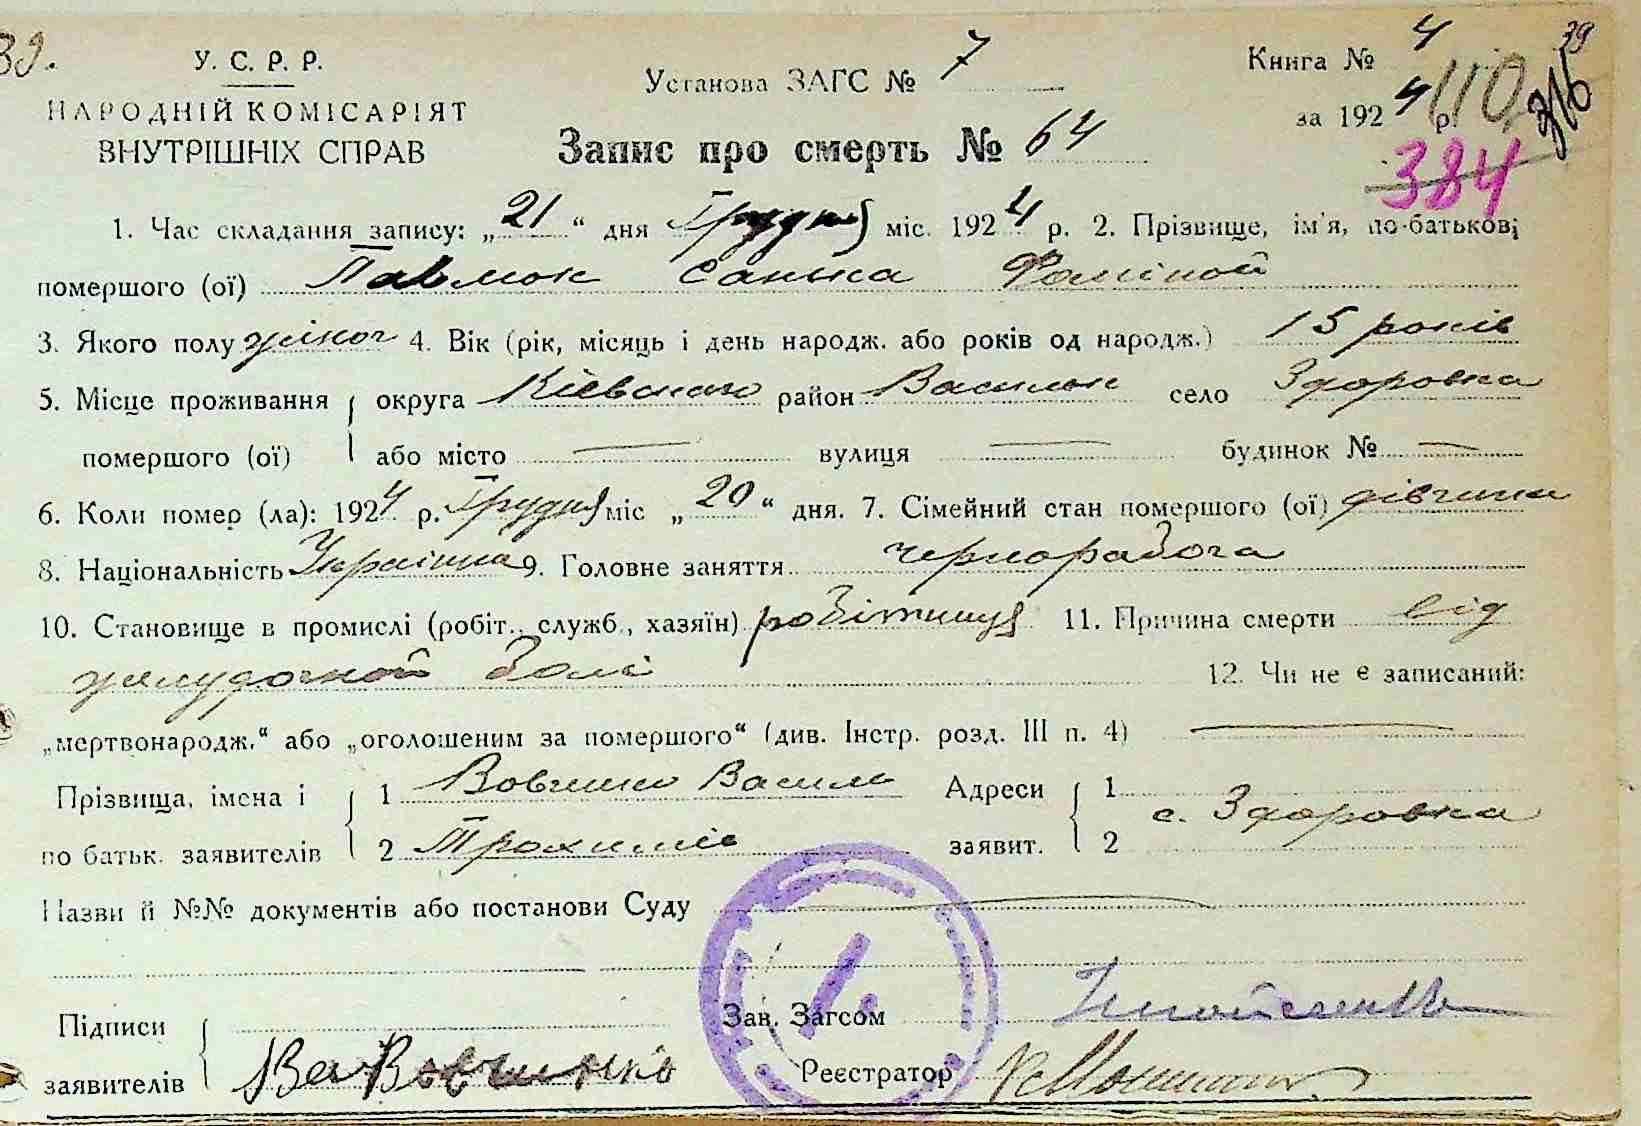 39.
У. С. Р. Р.
НАРОДНІЙ КОМІСАРІЯТ
ВНУТРІШНІХ СПРАВ
Установа ЗАГС № 7
Запис про смерть № 64
Книга № 4
39
за 1924 р.
110
316
384
1. Час складання запису: „21“ дня Грудня міс. 1924 р. 2. Прізвище, ім'я, по-батькові
помершого (ої) Павлюк Санька
3. Якого полу жіноч 4. Вік (рік, місяць і день народж. або років од народж.) 15 років
5. Місце проживання округа Кіевского район Васильк село Здоровка
помершого (ої) або місто — вулиця — будинок № —
6. Коли помер (ла): 1924 р. Грудня міс „20“ дня. 7. Сімейний стан помершого (ої) дівчина
8. Національність Украінка 9. Головне заняття чернорабоча
10. Становище в промислі (робіт., служб., хазяїн) робітниця 11. Причина смерти від
желудочной болі 12. Чи не є записаний:
„мертвонародж.“ або „оголошеним за помершого“ (див. Інстр. розд. III п. 4) —
Прізвища, імена і 1 Вовченко Василь Адреси 1
с. Здоровка
по батьк. заявителів 2 Трохимів заявит. 2
Назви й №№ документів або постанови Суду —
Підписи
Зав. Загсом
заявителів Ва Вовченко Реєстратор